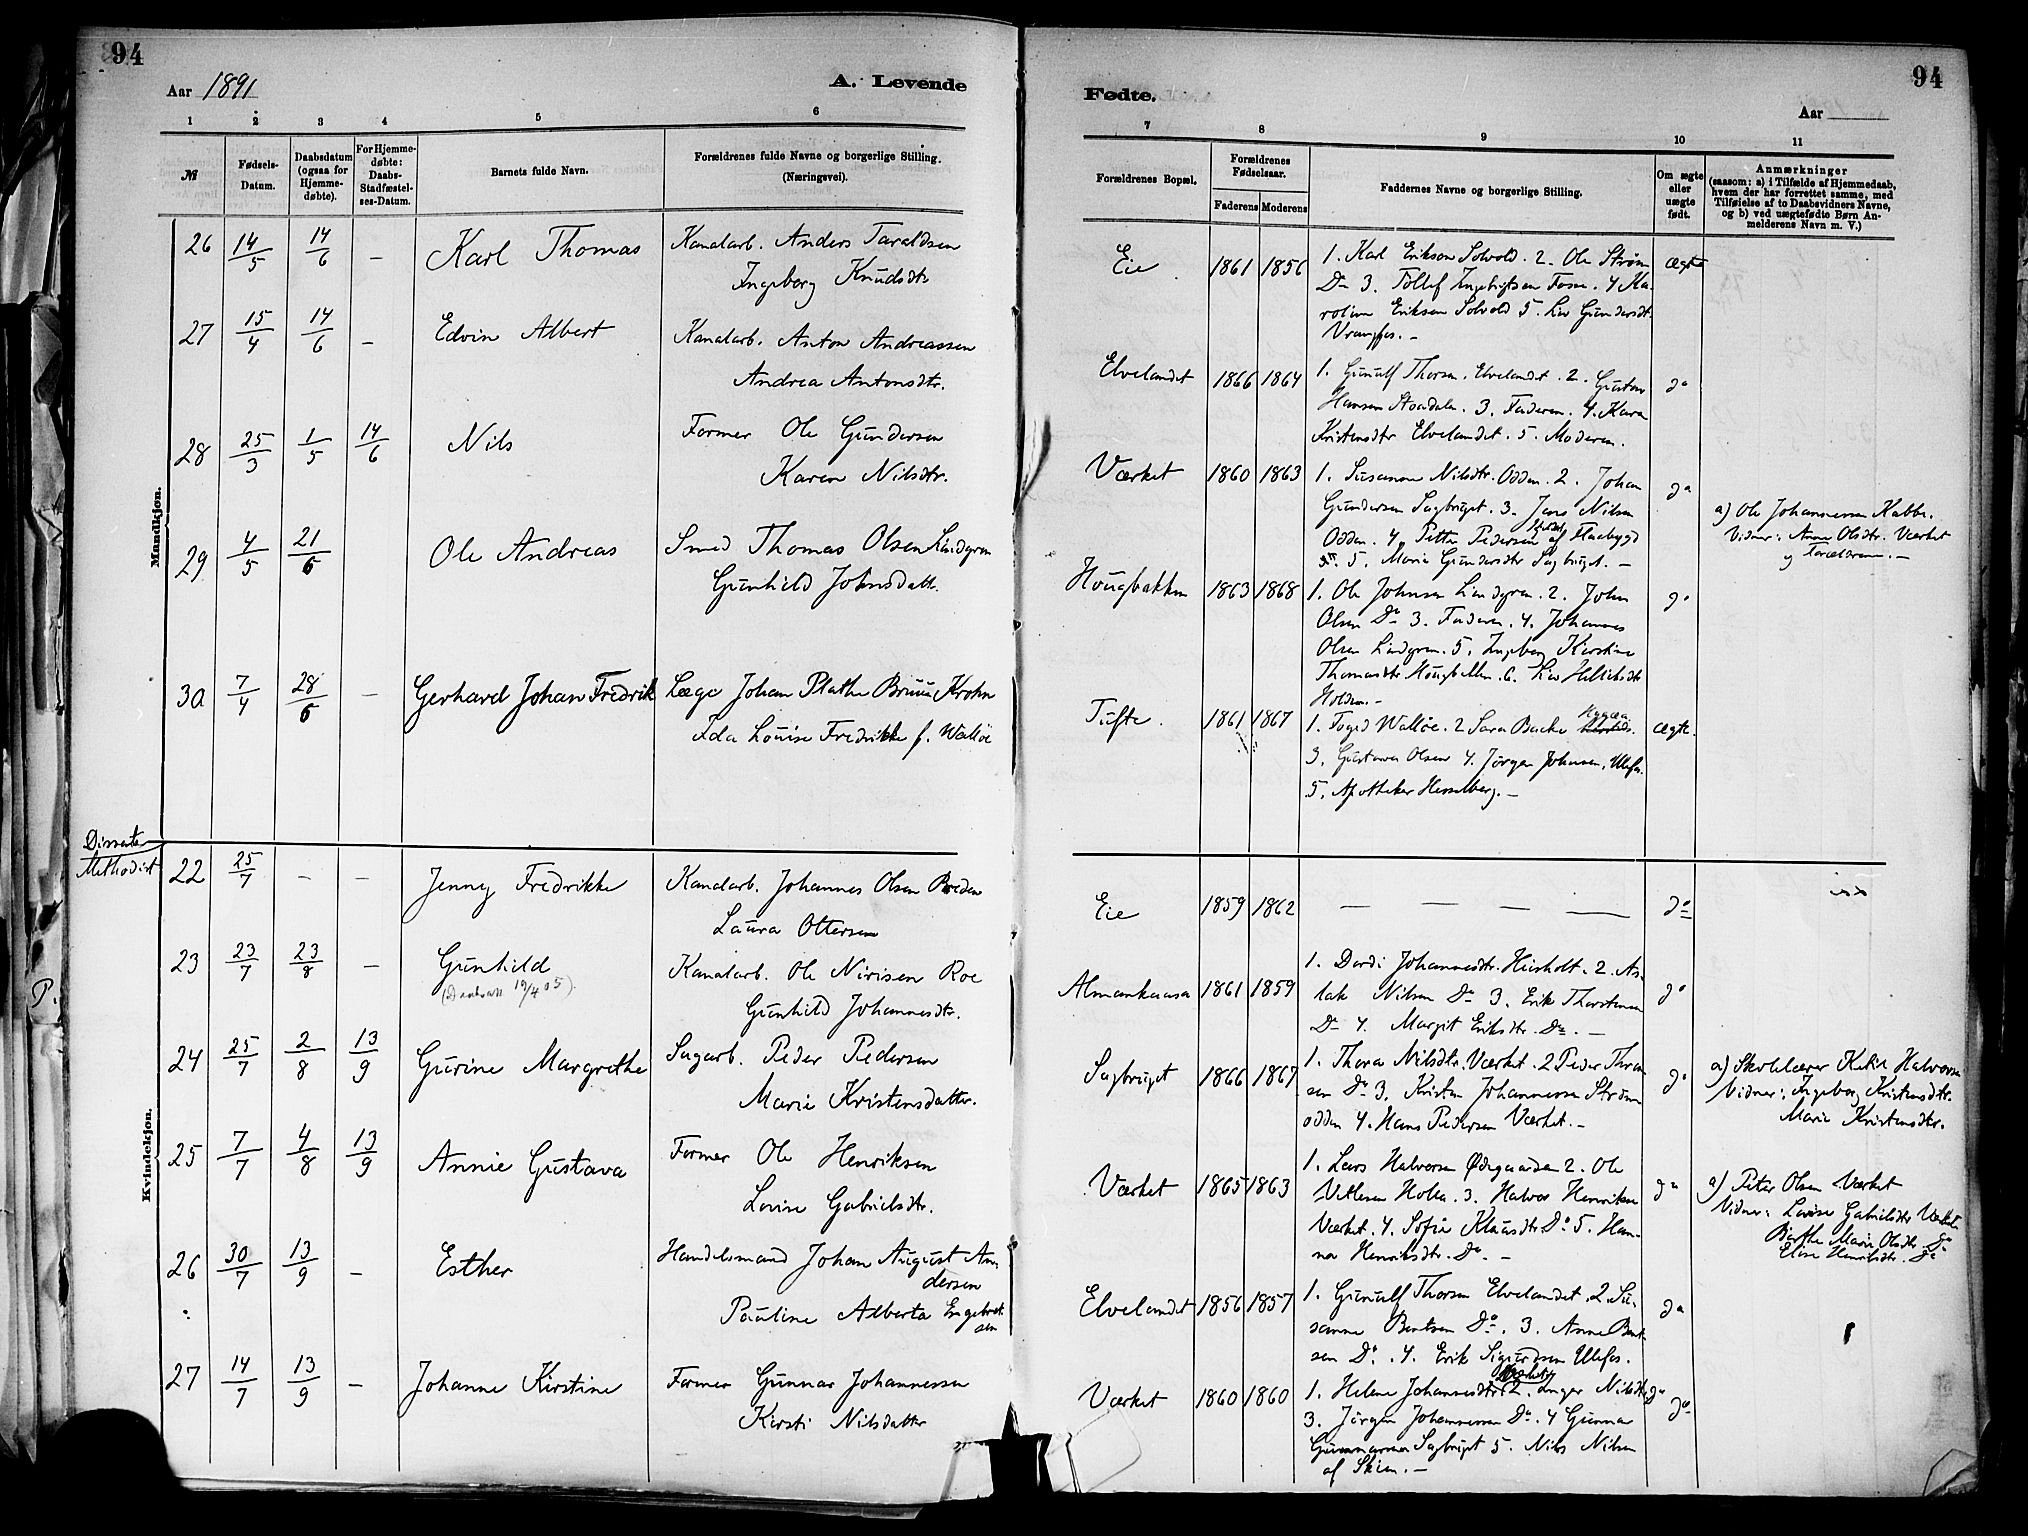 94
Aar 1891
A. Levende
1 2 3 4 5 6
№
Fødsels-
Datum.
Daabsdatum
(ogsaa for
Hjemme-
døbte).
For Hjemme-
døbte:
Daabs-
Stadfæstel-
ses-Datum.
Barnets fulde Navn.
Forældrenes fulde Navne og borgerlige Stilling.
(Næringsvei).
Mandkjøn.
26 14/5 14/6 – Karl Thomas Kanalarb. Anders Taraldsen
Ingeborg Knudsdtr.
27 15/4 14/6 – Edvin Albert Kanalarb. Anton Andreassen
Andrea Antonsdtr.
28 25/3 1/5 14/6 Nils Former Ole Gundersen
Karen Nilsdtr.
29 4/5 21/6 Ole Andreas Smed Thomas Olsen Lindgren
Gunhild Johnsdatt.
30 7/4 28/6 – Gerhard Johan Fredrik Læge Johan Plathe Bruun Krohn
Ida Louise Fredrikke f. Walløe
Dissenter
Methodist
Kvindekjøn.
22 25/7 – – Jenny Fredrikke Kanalarb. Johannes Olsen Breden
Laura Ottersen
23 23/7 23/8 – Gunhild Kanalarb. Ole Nirisen Roe
(Daabsatt 19/4 05).
Gunhild Johannesdtr.
24 25/7 2/8 13/9 Gurine Margrethe Sagarb. Peder Pedersen
Marie Kristensdatter.
25 7/7 4/8 13/9 Annie Gustava Former Ole Henriksen
Lovise Gabrielsdtr.
26 30/7 13/9 – Esther Handelsmand Johan August An-
dersen
Pauline Alberta Engebret-
sen
27 14/7 13/9 – Johanne Kirstine Former Gunnar Johannessen
Kirsti Nilsdatter
94
Fødte.
Aar
7 8 9 10 11
Forældrenes Bopæl.
Forældrenes
Fødselsaar.
Faderens Moderens
Faddernes Navne og borgerlige Stilling.
Om ægte
eller
uægte
født.
Anmærkninger
(saasom: a) i Tilfælde af Hjemmedaab,
hvem der har forrettet samme, med
Tilføielse af to Daabsvidners Navne,
og b) ved uægtefødte Børn An-
melderens Navn m. V.)
Eie 1861 1856 1. Karl Eriksen Solvold. 2. Ole Strøm ægte
Do 3. Tollef Ingebrigtsen Fosne. 4 Ka-
roline Eriksen Solvold 5. Liv Gundersdt.
Vrangfos. –
Elvelandet 1866 1864 1. Gunulf Thorsen. Elvelandet. 2. Gustav do
Hansen Stordalen. 3. Faderen. 4. Karen
Kristensdtr Elvelandet. 5. Moderen.
Værket 1860 1863 1. Susanne Nilsdtr. Odden. 2. Johan do
Gundersen Sagbruget. 3. Jens Nilsen
Odden. 4. Petter Pedersen af Flaabygd
5. Maria Gundersdtr Sagbruget. –
a) Ole Johannessen Kabbe.
Vidner: Anne Olsdtr. Værket
og Forældrene. –
Hougbakken 1863 1868 1. Ole Johnsen Lindgren. 2. John do
Olsen Do 3. Faderen. 4. Johannes
Olsen Lindgren. 5. Ingeborg Kirstine
Thomasdtr Hougbakken. 6. Liv Hellieksdtr
Holden. –
Tufte. 1861 1867 1. Foged Walløe. 2 Sara Backe ægte.
3. Gustava Olsen 4. Jørgen Johnsen, Ulefos.
5. Apotheker Hesselberg. –
Eie 1859 1862 – – – – do
Almankaasa 1861 1859 1. Dordi Johannesdtr. Heisholt. 2. As- do
lak Nilsen Do 3. Erik Thorstensen
Do 4. Margit Eriksdtr. Do. –
Sagbruget 1866 1867 1. Thora Nilsdtr. Værket. 2 Peder Thom- do
sen Do 3. Kristen Johannessen Strøm-
odden 4. Hans Pedersen Værket. –
a) Skolelærer Ketil Halvorsen
Vidner: Ingeborg Kristensdtr.
Marie Kristensdtr.
Værket 1865 1863 1. Lars Halvorsen Ødegaarden 2. Ole do
Vetlesen Holla. 3. Halvor Henriksen
Værket. 4. Sofie Klausdtr. Do 5. Han-
na Henriksdtr. Do. –
a) Peter Olsen Værket
Vidner: Lovise Gabrielsdtr Værket
Birthe Marie Olsdtr. Do
Elise Henriksdtr. Do
Elvelandet 1856 1857 1. Gunulf Thorsen Elvelandet. 2. Su- do
sanne Bentsen Do. 3. Anne Bent-
sen Do. 4. Erik Sigurdsen Ulefos.
Værket 1860 1860 1. Helene Johannesdtr Værket 2. Inger Nilsdtr. do do
3. Jørgen Johannessen Do. 4 Gunnar
Gunnarsen Sagbruget 5. Nils Nilsen
af Skien. –